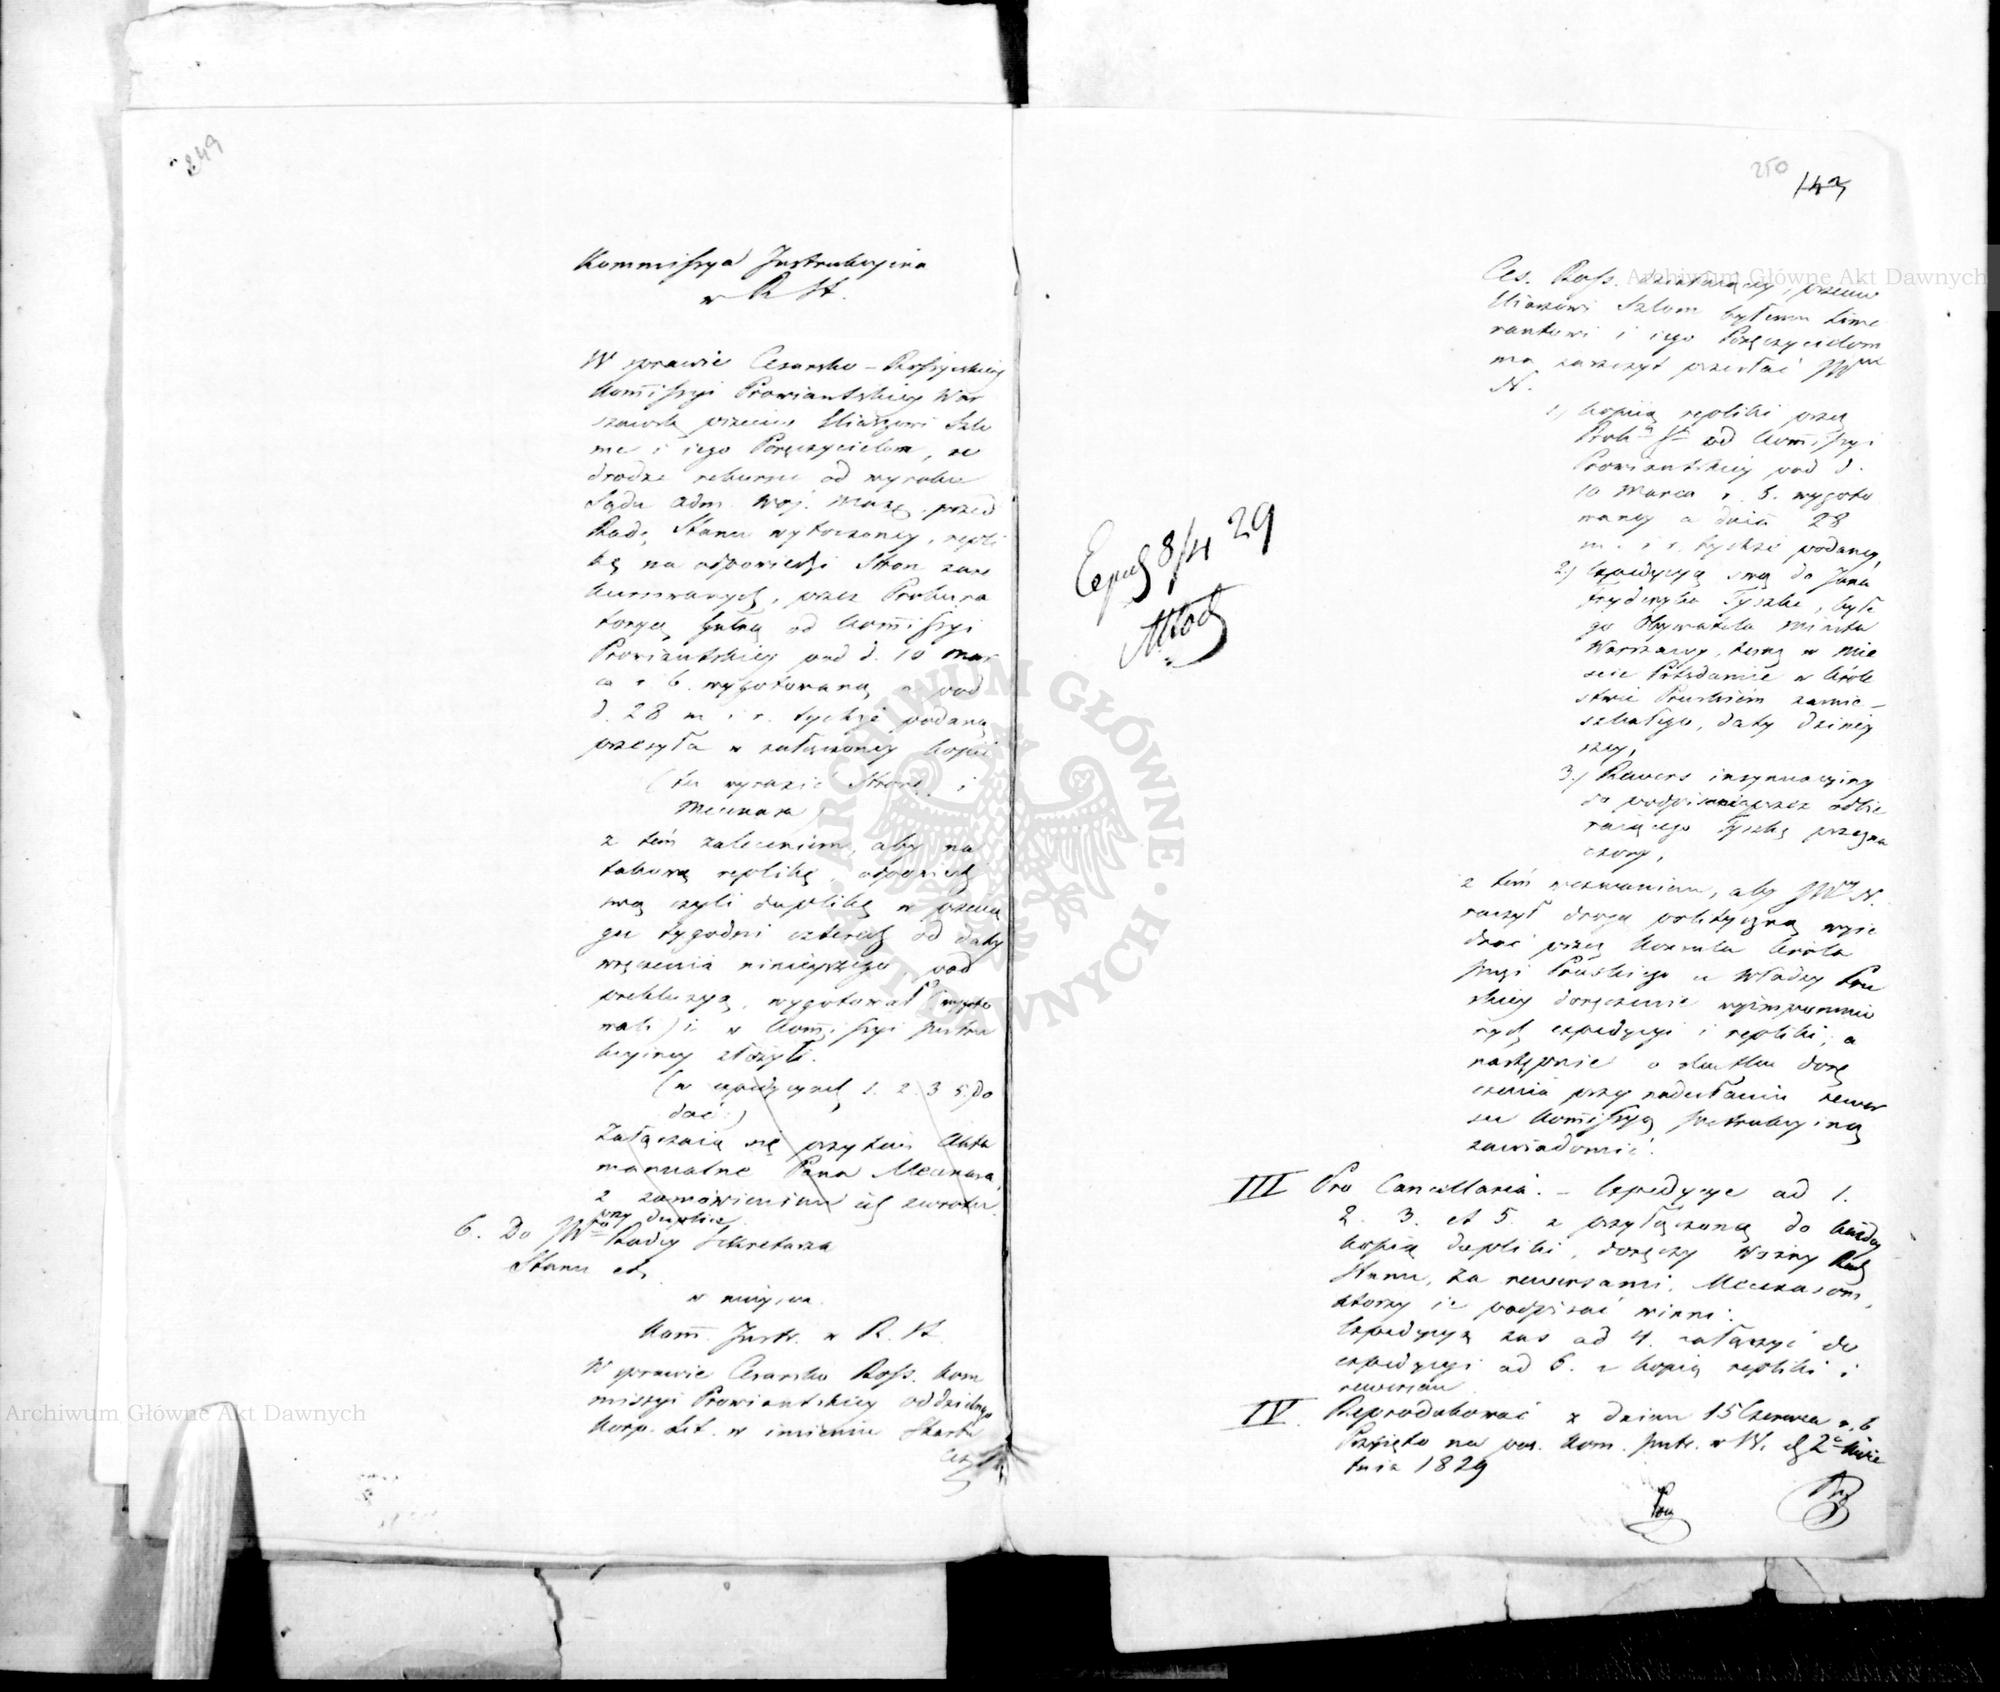 249
Kommissya Instrukcyina
w R. St.
W sprawie Cesarsko-Rossyiskiey
Kommissyi Prowiantskiey War
szawsk. przeciw Eliaszowi Szlo
me i iego Poręczycielom, w
drodze rekursu od wyroku
Sądu Adm. Woj. Mazo. przed
Radę Stanu wytoczoney, repli
kę na odpowiedzi Stron zare
kursowanych, przez Prokura
toryą Jlną od Kommissyi
Prowiantskiey pod d. 10 Mar
ca r. b. wygotowaną a pod
d. 28 m. i r. tychże podaną
przesyła w załączoney kopii
(tu wyrazić Stronę i
Mecenasa)
z tem zaleceniem, aby na
takową replikę, odpowiedź
swą czyli duplikę w przecią
gu tygodni czterech od daty
wręczenia ninieyszego, pod
prekluzyą, wygotował (wygoto
wali) i w Kommissyi Instru
kcyiney złożył.
(w expedycyach 1. 2. 3. 5. do
dać:)
Załączaią się przytem Akta
manualne Pana Mecenasa,
z zamówieniem ich zwrotu
przy duplice.
6. Do JWgo Radcy Sekretarza
Stanu etc.
w mieyscu.
Komm. Instr. w R. St.
W sprawie Cesarsko Ross. Kom
missyi Prowiantskiey oddzielnego
Korp. Lit. w imieniu Skarbu
Ces.
250
143
Ces. Ross. działaiącey, przeciw
Eliaszowi Szlom byłemu liwe
rantowi i iego Poręczycielom
ma zaszczyt przesłać JWmu
N.
1.) kopiią repliki przez
Prok. J. od Kommissyi
Prowiantskiey pod d.
10 Marca r. b. wygoto
waney a dnia 28
m. i r. tychże podaney,
2.) Expedycyą swą do Jana
Fryderyka Tyszke, byłe
go Obywatela Miasta
Warszawy, teraz w Mie
ście Potsdamie w Króle
stwie Pruskiem zamie-
szkałego, daty dzisiey
szey,
3.) Rewers insynuacyiny
do podpisania przez odbie
raiącego Tyszkę przezna
czony,
z tem wezwaniem, aby JWny N.
raczył drogą polityczną wyie
dnać przez Konsula Króle
skiego Pruskiego u Władzy Pru
skiey doręczenie wyżwspomnio
nych expedycyi i repliki, a
następnie o skutku dorę
czenia przy nadesłaniu rewer
su Kommissyą Instrukcyiną
zawiadomić.
Exped 8/4 29
Młod
III Pro Cancellaria. - Expedycye ad 1.
2. 3. et 5. z przyłączoną do każdey
kopią repliki, doręczy Woźny Rady
Stanu, za rewersami, Mecenasom,
którzy ie podpisać winni.
Expedycyą zaś ad 4. załączyć do
expedycyi ad 6. z kopią repliki i
rewersem.
IV. Reprodukować z dniem 15 Czerwca r. b.
Przyięto na pos. Kom. Instr. w R. St. d. 2 Kwie
tnia 1829